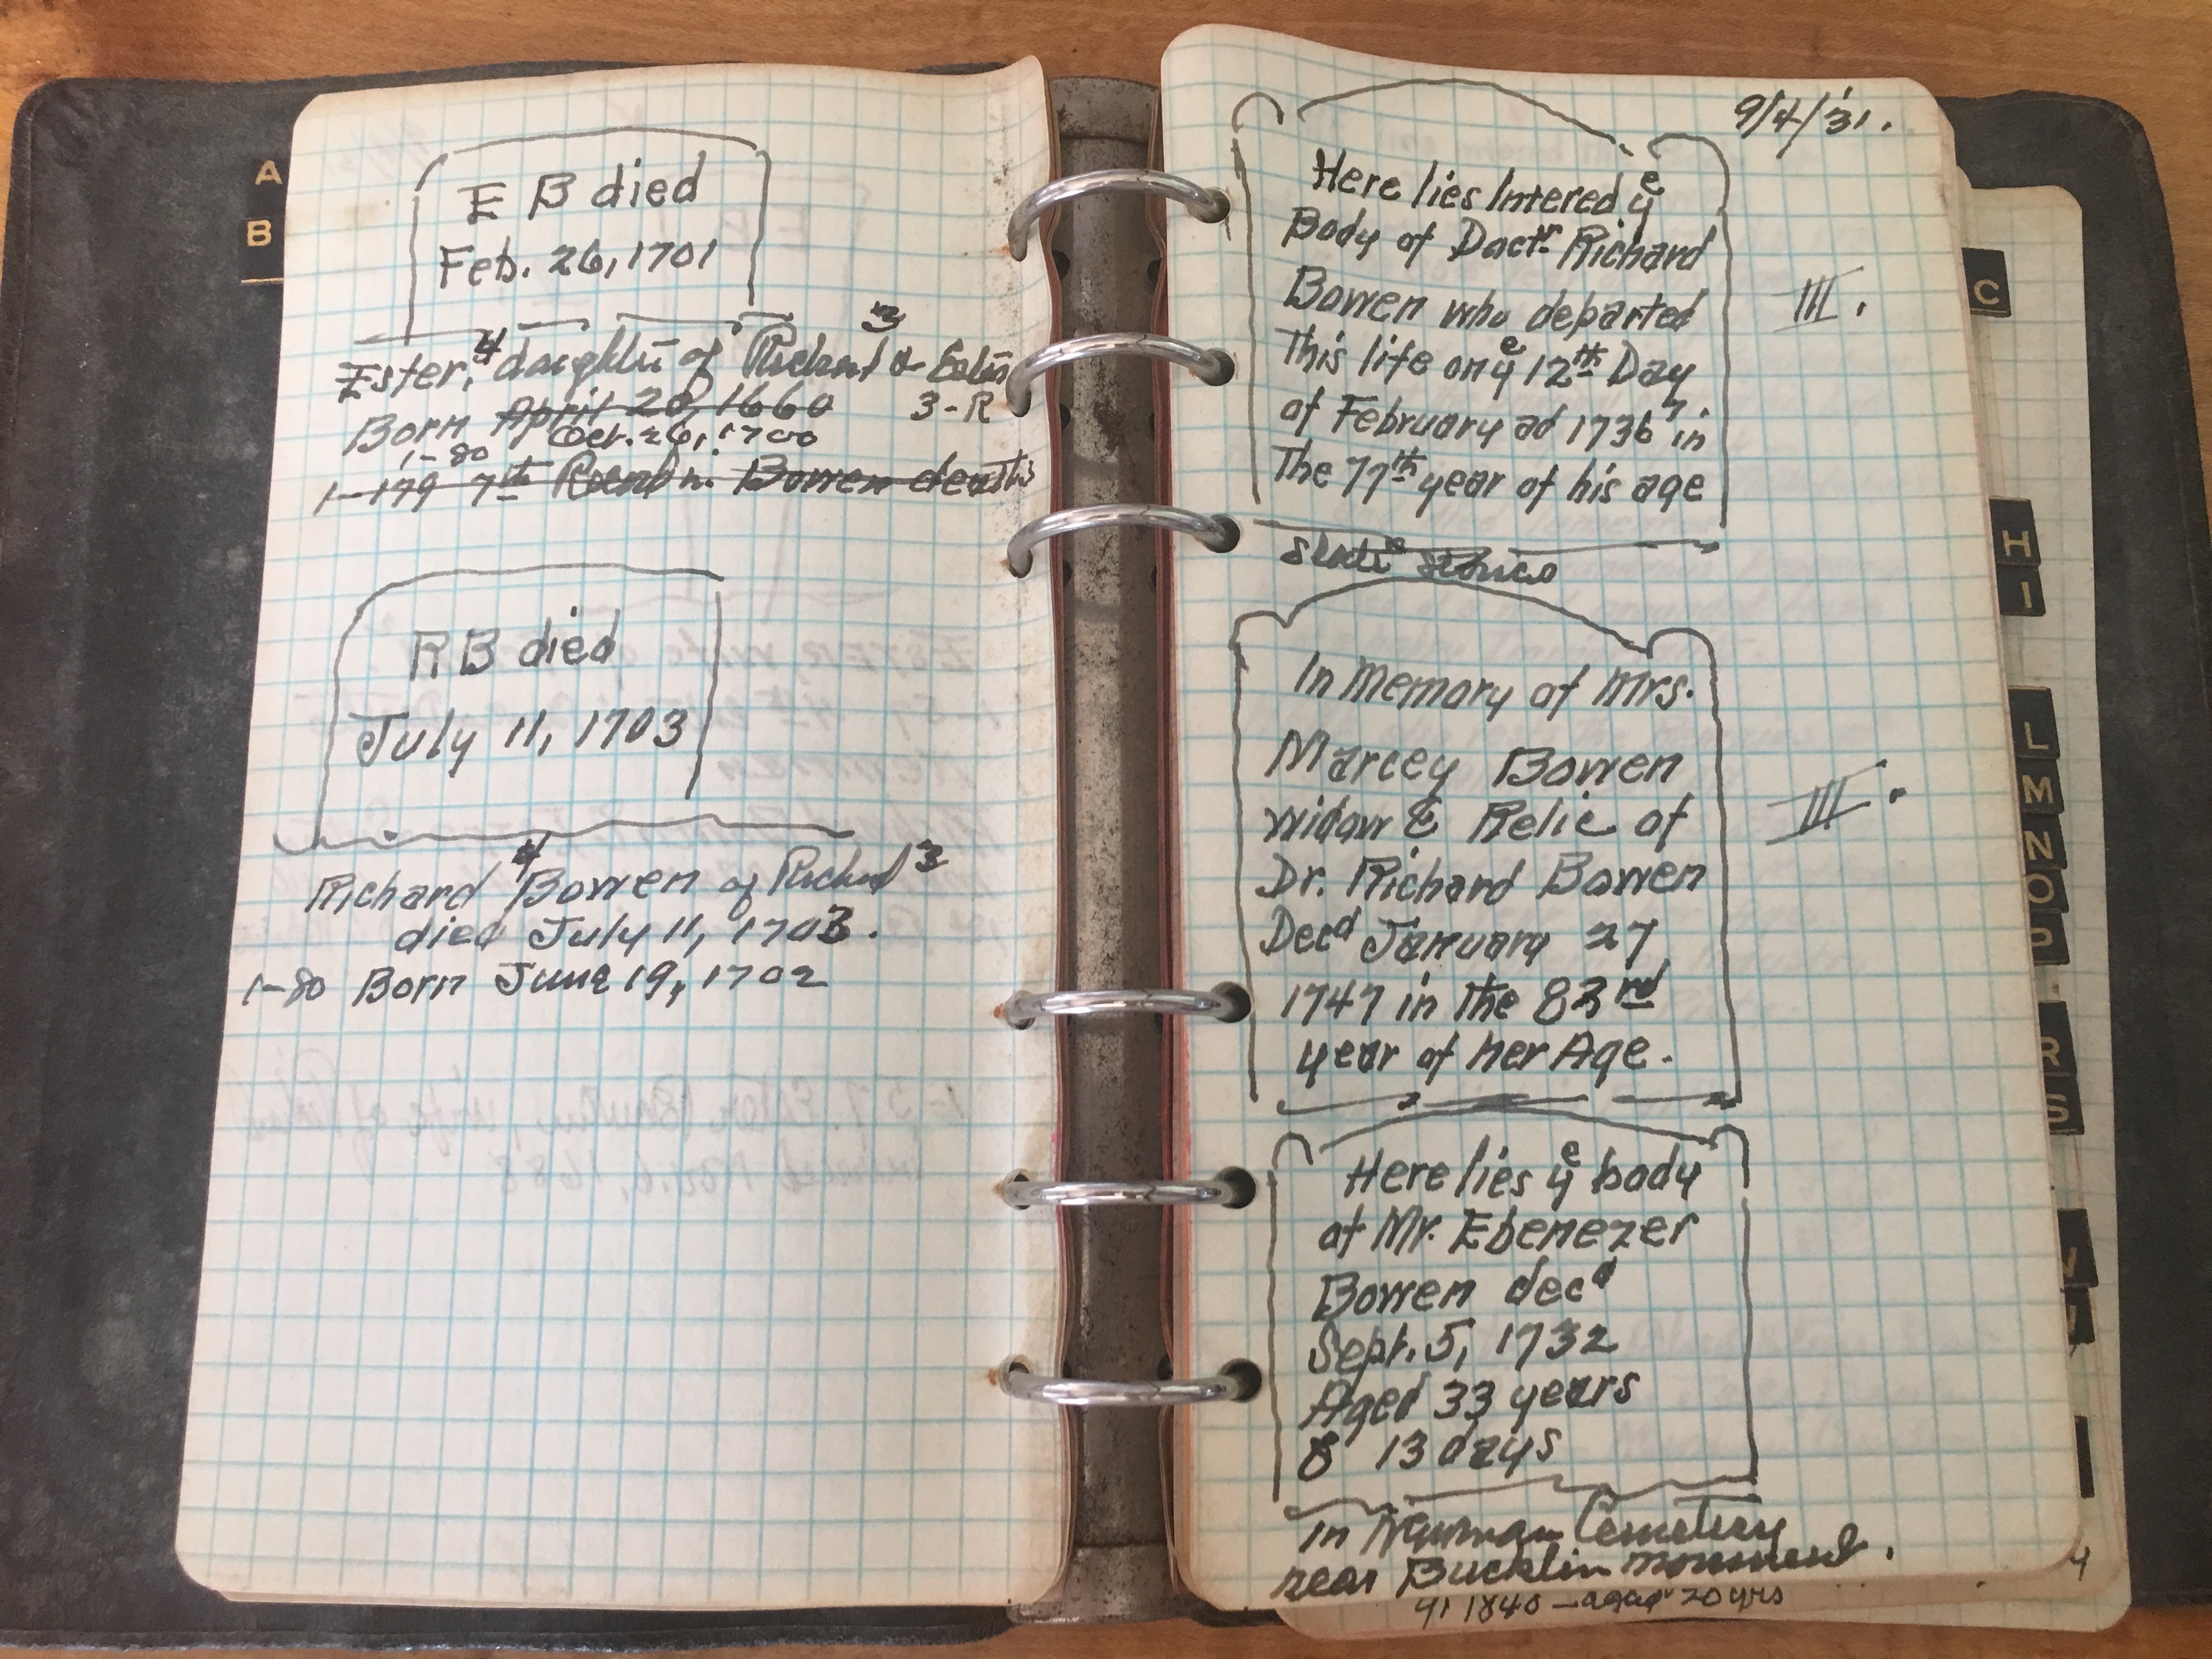 A
B
E B died
Feb. 26, 1701
Ester,⁴ daughter of Richard³ &
Born April 20, 1660 3-R
1-80 Oct. 26, 1700
1-179 7th Bowen deaths
R B died
July 11, 1703
Richard⁴ Bowen of Richard³
died July 11, 1703.
1-80 Born June 19, 1702
9/4/'31.
Here lies Intered yᵉ
Body of Doctʳ. Richard
Bowen who departed
III.
This life on yᵉ 12th Day
of February ad 1736/7. in
The 77th year of his age
Slate stones
In Memory of Mrs.
Marcey Bowen
widow & Relic of
III.
Dr. Richard Bowen
Decᵈ January 27
1747 in the 83rd
year of her Age.
Here lies yᵉ body
of Mr. Ebenezer
Bowen decᵈ
Sept. 5, 1732
Aged 33 years
& 13 days
in Newman Cemetery
near Bucklin monument.
1840 - aged 20 yrs
C
H
I
L
M
N
O
P
R
S